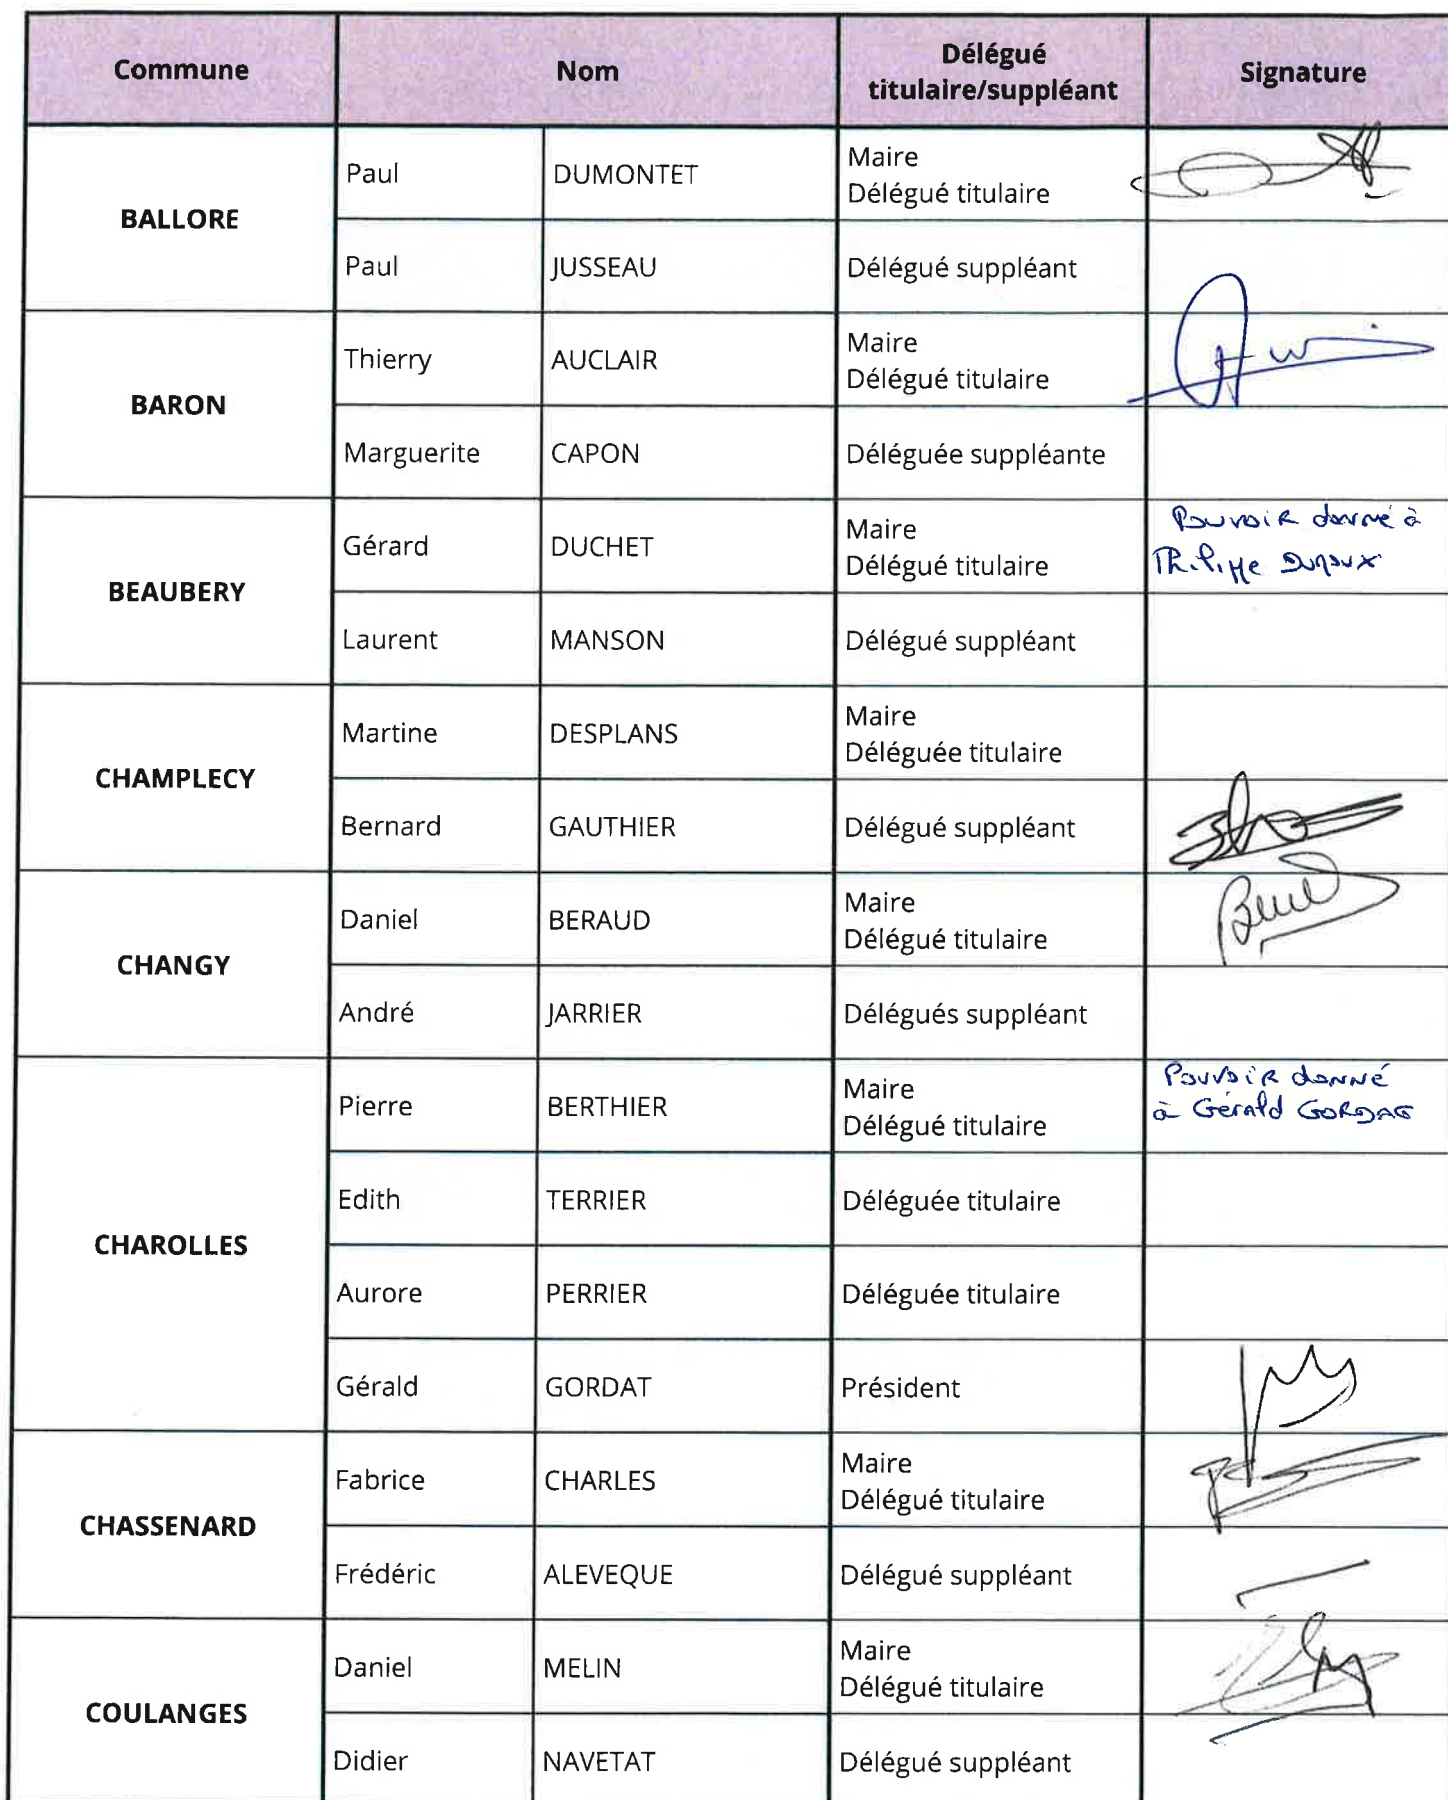 Commune Nom Délégué titulaire/suppléant Signature
BALLORE
Paul DUMONTET Maire
Délégué titulaire
Paul JUSSEAU Délégué suppléant
BARON
Thierry AUCLAIR Maire
Délégué titulaire
Marguerite CAPON Déléguée suppléante
BEAUBERY
Gérard DUCHET Maire Pouvoir donné à
Délégué titulaire Philippe
Laurent MANSON Délégué suppléant
CHAMPLECY
Martine DESPLANS Maire
Déléguée titulaire
Bernard GAUTHIER Délégué suppléant
CHANGY
Daniel BERAUD Maire
Délégué titulaire
André JARRIER Délégués suppléant
CHAROLLES
Pierre BERTHIER Maire Pouvoir donné
Délégué titulaire à Gérald GORDAT
Edith TERRIER Déléguée titulaire
Aurore PERRIER Déléguée titulaire
Gérald GORDAT Président
CHASSENARD
Fabrice CHARLES Maire
Délégué titulaire
Frédéric ALEVEQUE Délégué suppléant
COULANGES
Daniel MELIN Maire
Délégué titulaire
Didier NAVETAT Délégué suppléant